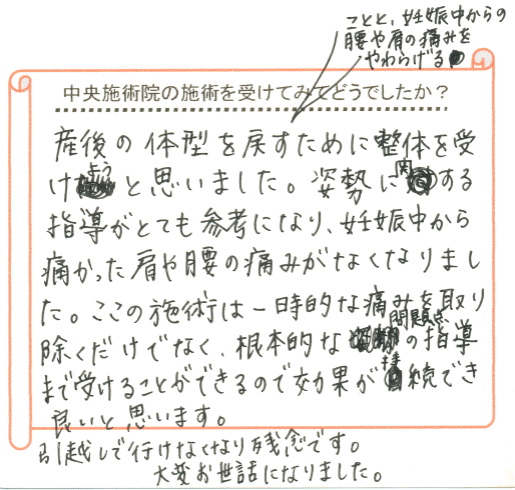 ことと、妊娠中からの
腰や肩の痛みを
やわらげる
中央施術院の施術を受けてみてどうでしたか？
産後の体型を戻すために整体を受
けようと思いました。姿勢に関する
指導がとても参考になり、妊娠中から
痛かった肩や腰の痛みがなくなりまし
た。ここの施術は一時的な痛みを取り
除くだけでなく、根本的な問題点の指導
まで受けることができるので効果が持続でき
良いと思います。
引越しで行けなくなり残念です。
大変お世話になりました。